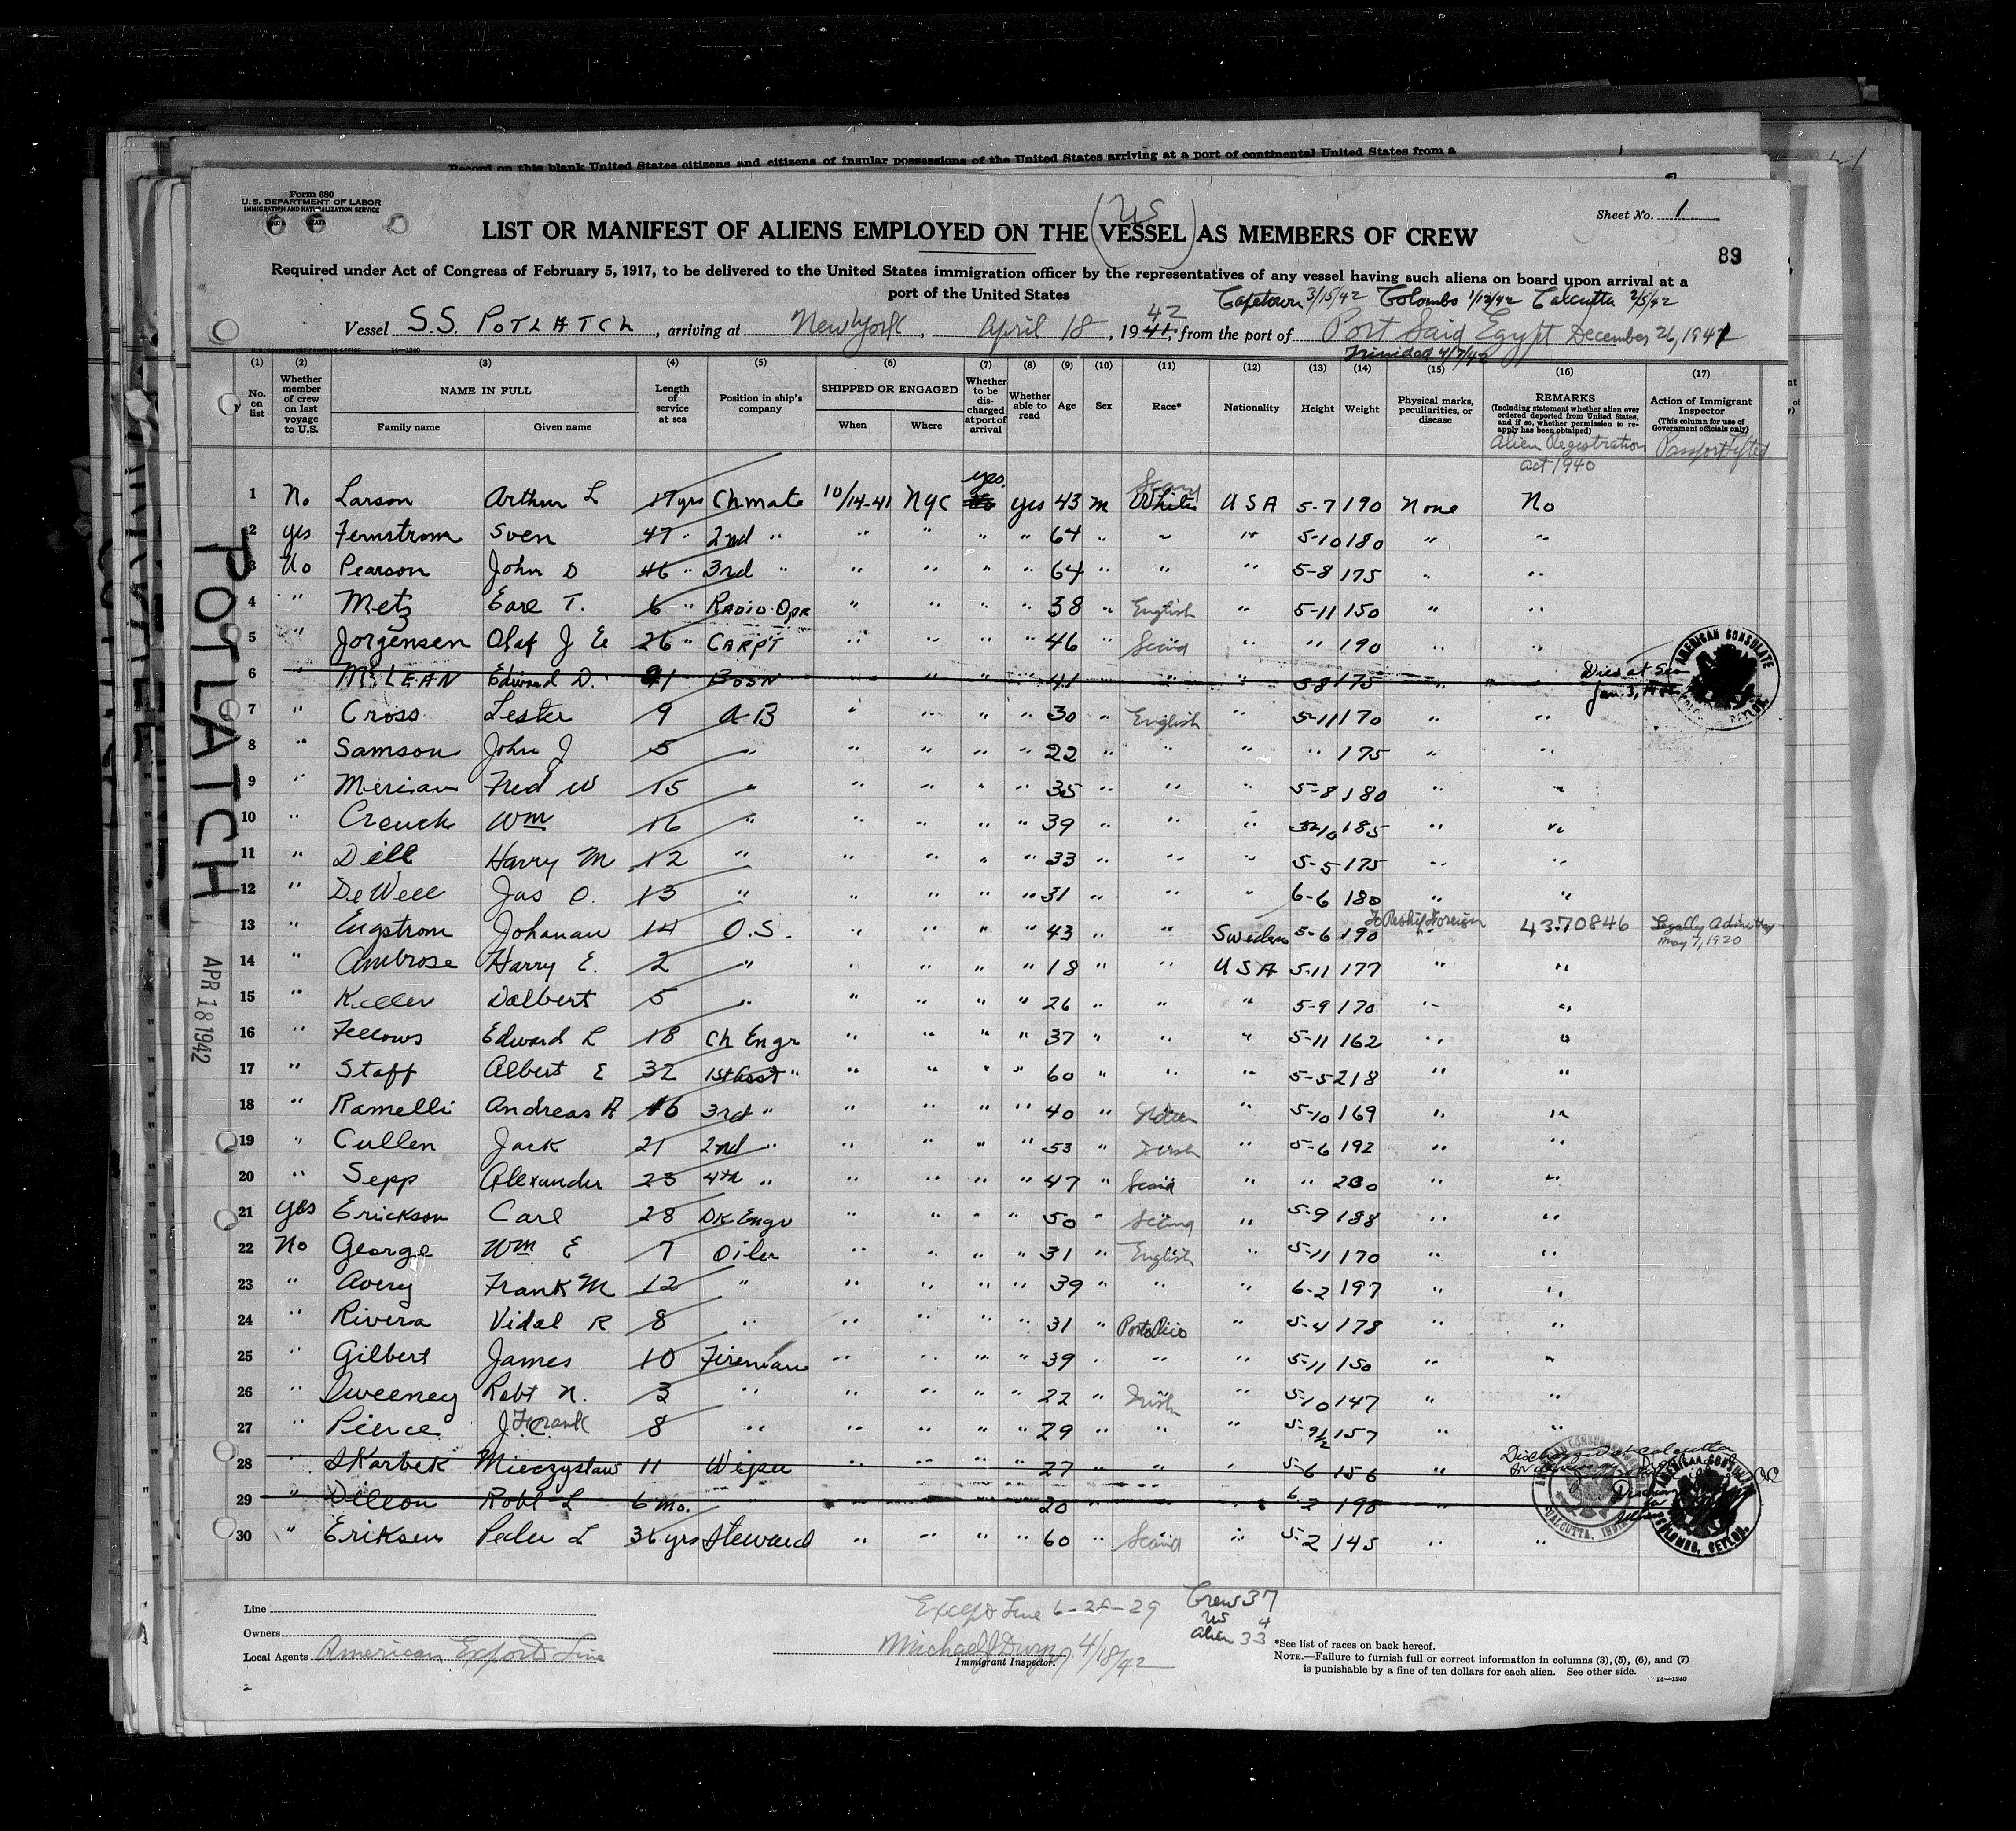 Record on this blank United States citizens and citizens of insular possessions of the United States arriving at a port of continental United States from a
Form 680
U. S. DEPARTMENT OF LABOR
IMMIGRATION AND NATURALIZATION SERVICE
Sheet No. 1
US
LIST OR MANIFEST OF ALIENS EMPLOYED ON THE (VESSEL) AS MEMBERS OF CREW
89
Required under Act of Congress of February 5, 1917, to be delivered to the United States immigration officer by the representatives of any vessel having such aliens on board upon arrival at a
port of the United States
Capetown 3/15/42 Colombo 1/12/42 Calcutta 2/5/42
Vessel S.S. POTLATCH, arriving at New York, April 18, 1941, 42 from the port of Port Said Egypt December 26, 1941
Trinidad 4/7/42
14—1240
(1) (2) (3) (4) (5) (6) (7) (8) (9) (10) (11) (12) (13) (14) (15) (16) (17)
No. on list
Whether member of crew on last voyage to U.S.
NAME IN FULL
Family name
Given name
Length of service at sea
Position in ship's company
SHIPPED OR ENGAGED
When
Where
Whether to be discharged at port of arrival
Whether able to read
Age
Sex
Race*
Nationality
Height
Weight
Physical marks, peculiarities, or disease
REMARKS
(Including statement whether alien ever ordered deported from United States, and if so, whether permission to re-apply has been obtained)
Alien Registration
act 1940
Action of Immigrant Inspector
(This column for use of Government officials only)
Passport Lifted
1 No Larson Arthur L 17 yrs Ch mate 10/14-41 NYC yes yes 43 m Scand White USA 5-7 190 None No
2 yes Fernstrom Sven 47 " 2nd " " " " " 64 " " " 5-10 180 " "
3 No Pearson John D 46 " 3rd " " " " " 64 " " " 5-8 175 " "
4 " Metz Earl T. 6 " RADIO OPR " " " " 38 " English " 5-11 150 " "
5 " Jorgensen Olaf J E 26 " CARPT " " " " 46 " Scand " " 190 " "
6 " McLEAN Edward D. 21 BOSN " " " " 41 " " " 5-8 175 " " Died at Sea
Jan. 3,
AMERICAN CONSULATE
CEYLON
7 " Cross Lester 9 A B " " " " 30 " English " 5-11 170 " "
8 " Samson John J 5 " " " " " 22 " " " " 175 " "
9 " Merian Fred W 15 " " " " " 35 " " " 5-8 180 " "
10 " Crouch Wm 16 " " " " " 39 " " " 5-10 185 " "
11 " Dill Harry M 12 " " " " " 33 " " " 5-5 175 " "
12 " DeWell Jas O. 13 " " " " " 31 " " " 6-6 180 " "
13 " Engstrom Johanan 14 O.S. " " " " 43 " " Sweden 5-6 190 To Reship Foreign " 4370846 Legally Admitted
May 7, 1920
14 " Ambrose Harry E. 2 " " " " " 18 " " USA 5-11 177 " "
15 " Keller Dalbert 5 " " " " " 26 " " " 5-9 170 " "
16 " Fellows Edward L 18 Ch Engr " " " " 37 " " " 5-11 162 " "
17 " Staff Albert E 32 1st Asst " " " " " 60 " " " 5-5 218 " "
18 " Ramelli Andreas A 16 3rd " " " " " 40 " " 5-10 169 " "
19 " Cullen Jack 21 2nd " " " " " 53 " " 5-6 192 " "
20 " Sepp Alexander 23 4th " " " " " 47 " Scand " " 230 " "
21 yes Erickson Carl 28 Dk Engr " " " " 50 " Scand " 5-9 188 " "
22 No George Wm E 7 Oiler " " " " 31 " English " 5-11 170 " "
23 " Avery Frank M 12 " " " " " 39 " " " 6-2 197 " "
24 " Rivera Vidal R 8 " " " " " 31 " Porto Rico " 5-4 178 " "
25 " Gilbert James 10 Fireman " " " " 39 " " " 5-11 150 " "
26 " Sweeney Robt N. 3 " " " " " 22 " Irish " 5-10 147 " "
27 " Pierce J. Frank 8 " " " " " 29 " " " 5-9½ 157 " "
28 " Skarbek Mieczyslaw 11 Wiper " " " " 27 " " " 5-6 156 " Discharged at Calcutta
29 " Dileon Robt L 6 mo. " " " " " 20 " " " 6-2 190 "
AMERICAN CONSULATE
CALCUTTA, INDIA
AMERICAN CONSULATE
COLOMBO, CEYLON.
30 " Eriksen Peder L 36 yrs Steward " " " " 60 " Scand " 5-2 145 " "
POTLATCH
APR 18 1942
Line
Owners
Local Agents American Export Line
Except Line 6-28-29
4/18/42
Immigrant Inspector.
Crew 37
US 4
alien 33
*See list of races on back hereof.
NOTE.—Failure to furnish full or correct information in columns (3), (5), (6), and (7)
is punishable by a fine of ten dollars for each alien. See other side.
14—1240